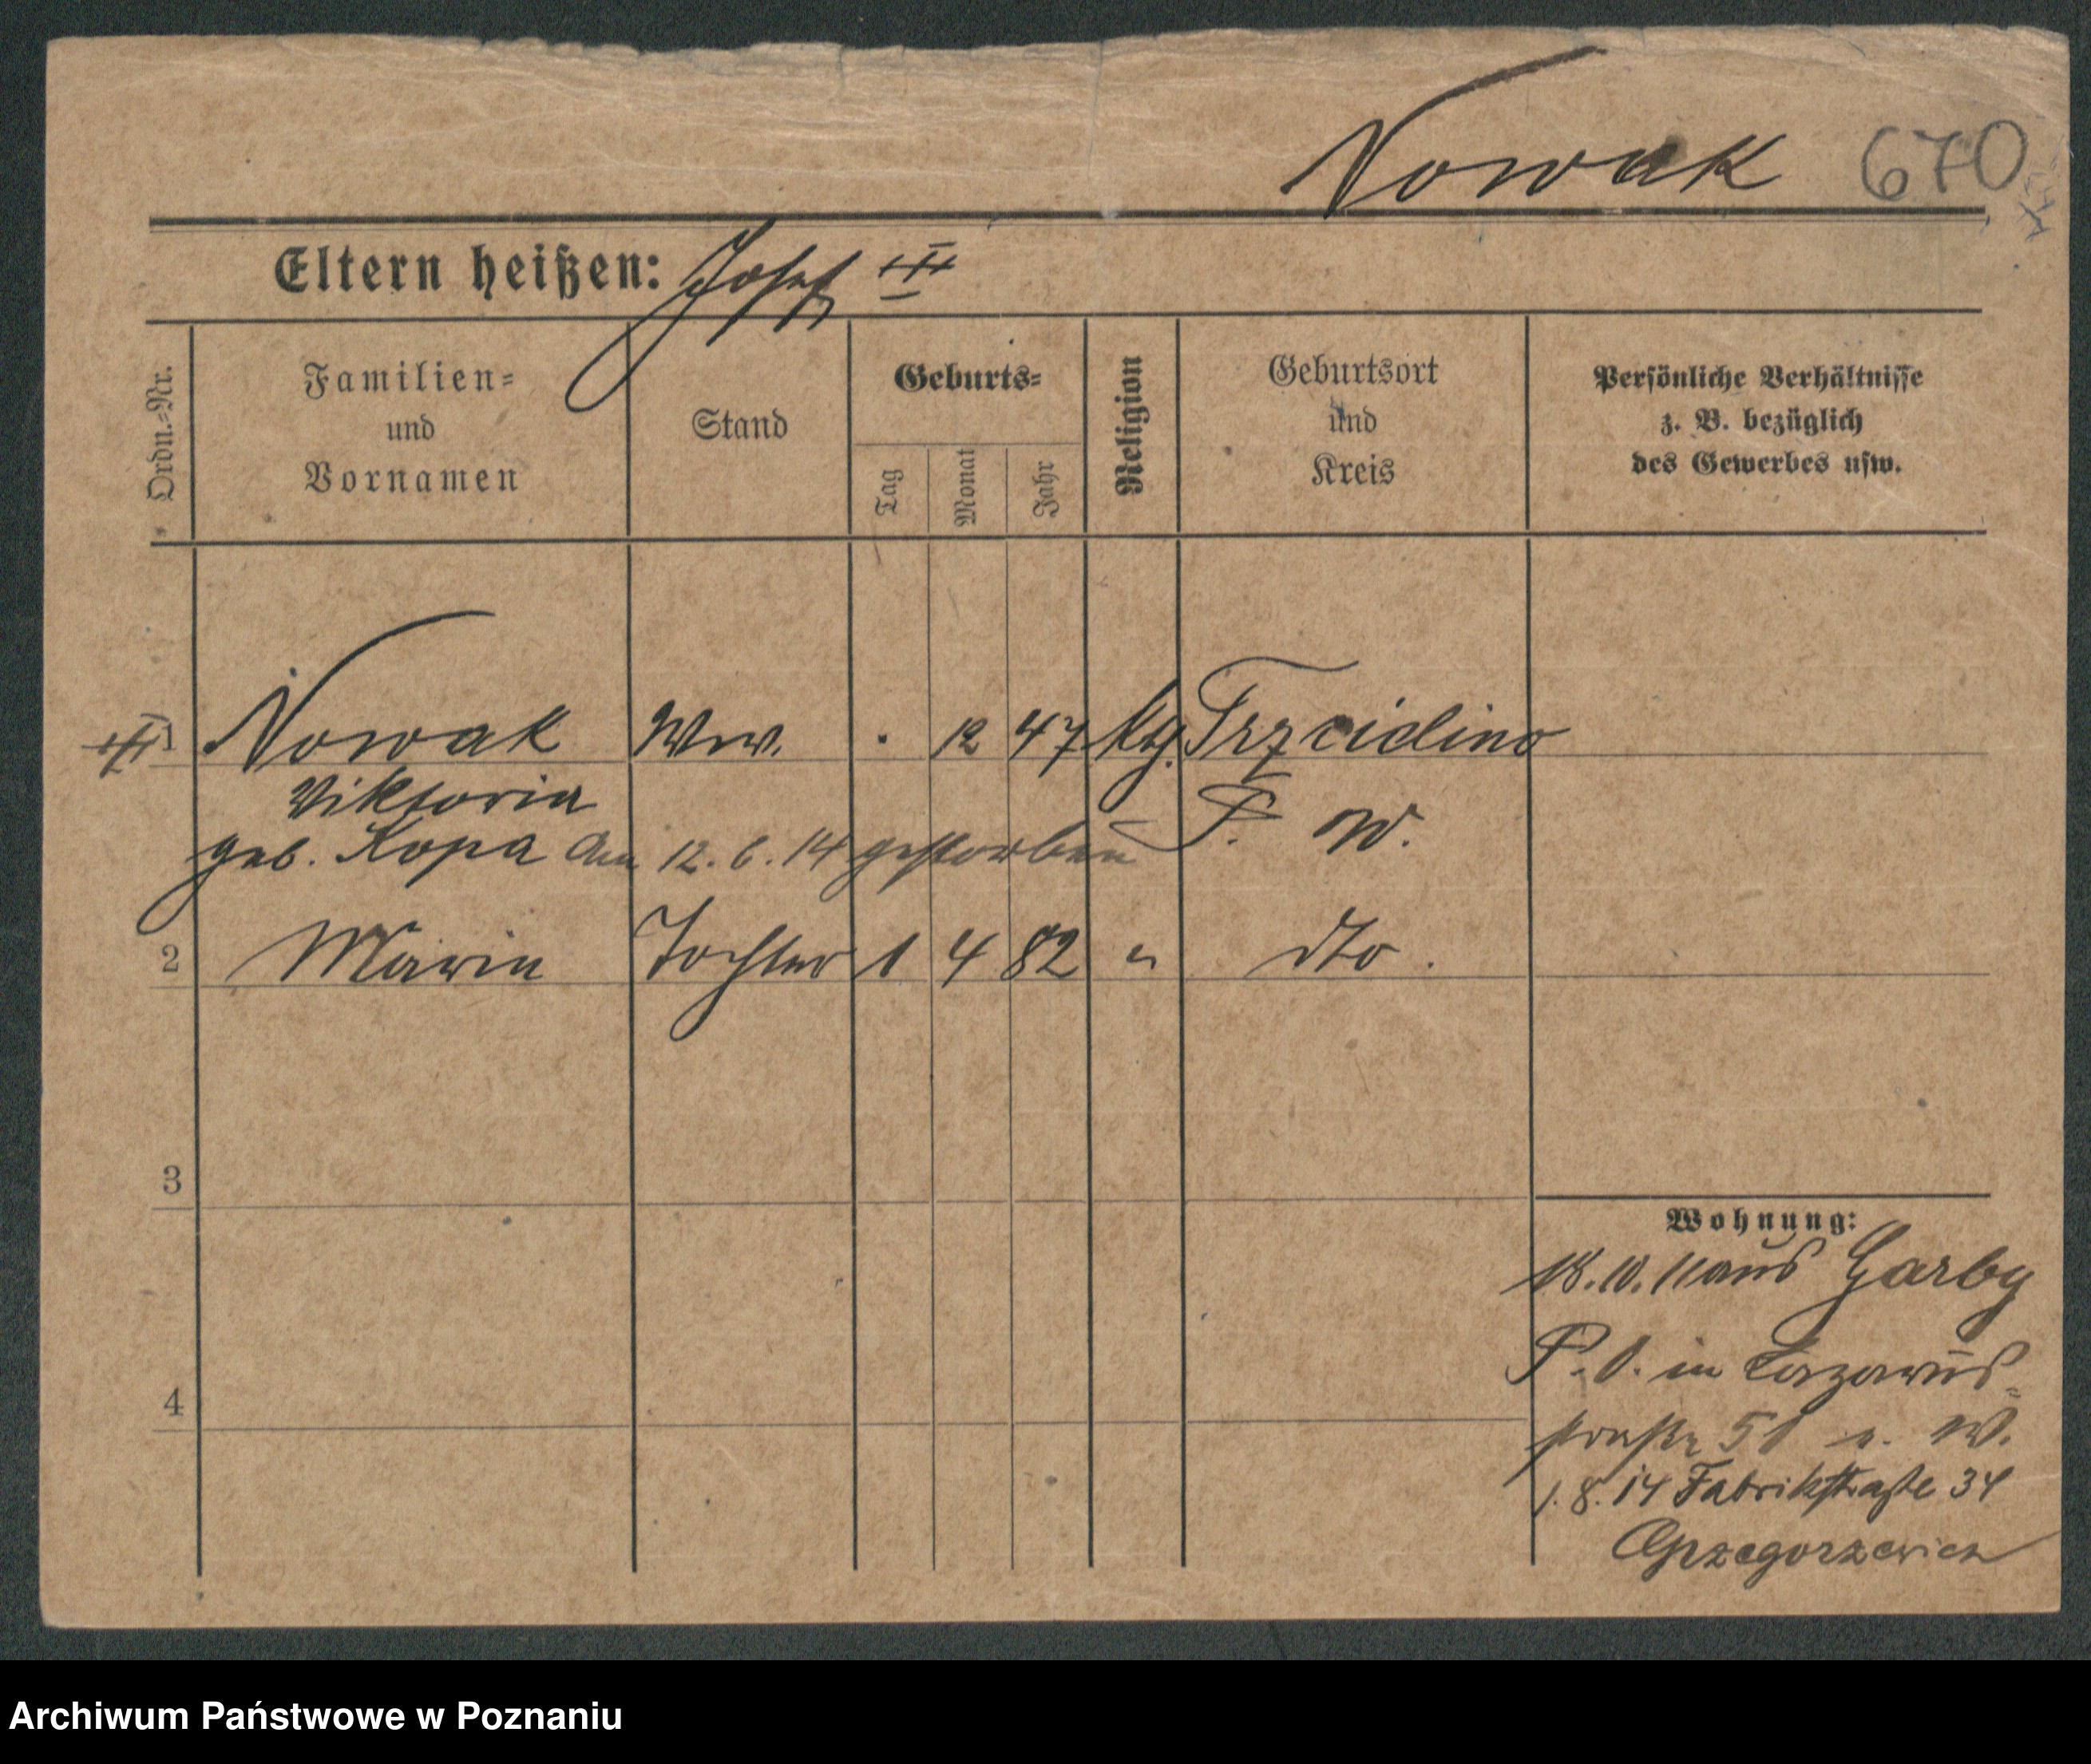 Nowak 670
Eltern heißen: Josef
Ordn.-Nr.
Familien-
und
Vornamen
Stand
Geburts-
Tag
Monat
Jahr
Religion
Geburtsort
und
Kreis
Persönliche Verhältnisse
z. B. bezüglich
des Gewerbes usw.
Nowak Ww. . 12 47 ktg. Trzcidlino
Viktoria P. W.
geb. Kopa Am 12. 6. 14 gestorben
2 Maria Tochter 1 4 82 " dto.
3
4
Wohnung:
18.10.11 aus Garby
P. O. in Lazarus-
straße 51 W.
1. 8. 14 Fabrikstraße 34
Grzegorzewicz
Archiwum Państwowe w Poznaniu